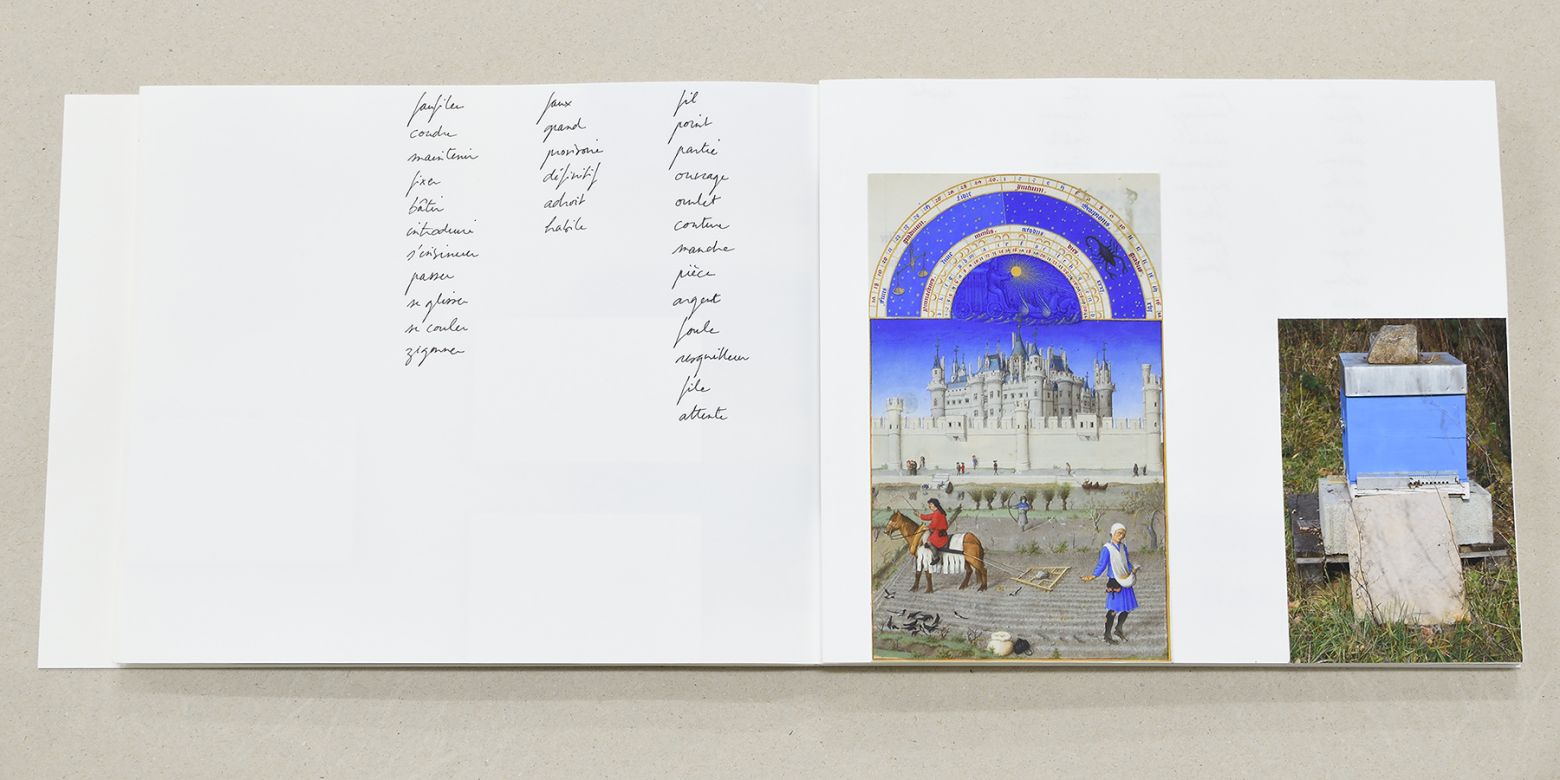 faufiler
coudre
maintenir
fixer
bâtir
introduire
s'insinuer
passer
se glisser
se couler
zigonner
faux
grand
provisoire
définitif
adroit
habile
fil
point
partie
ouvrage
ourlet
couture
manche
pièce
argent
foule
resquilleur
file
attente